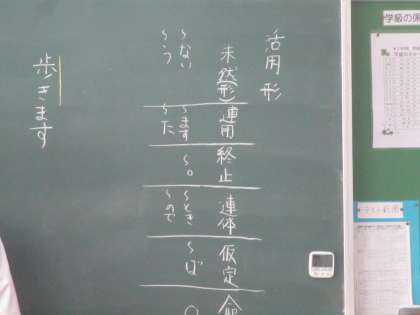 活用形
未然(形)
〜ない
〜う
連用
〜ます
〜た
終止
〜。
連体
〜とき
〜ので
仮定
〜ば
命
歩きます
学級の
テスト範囲